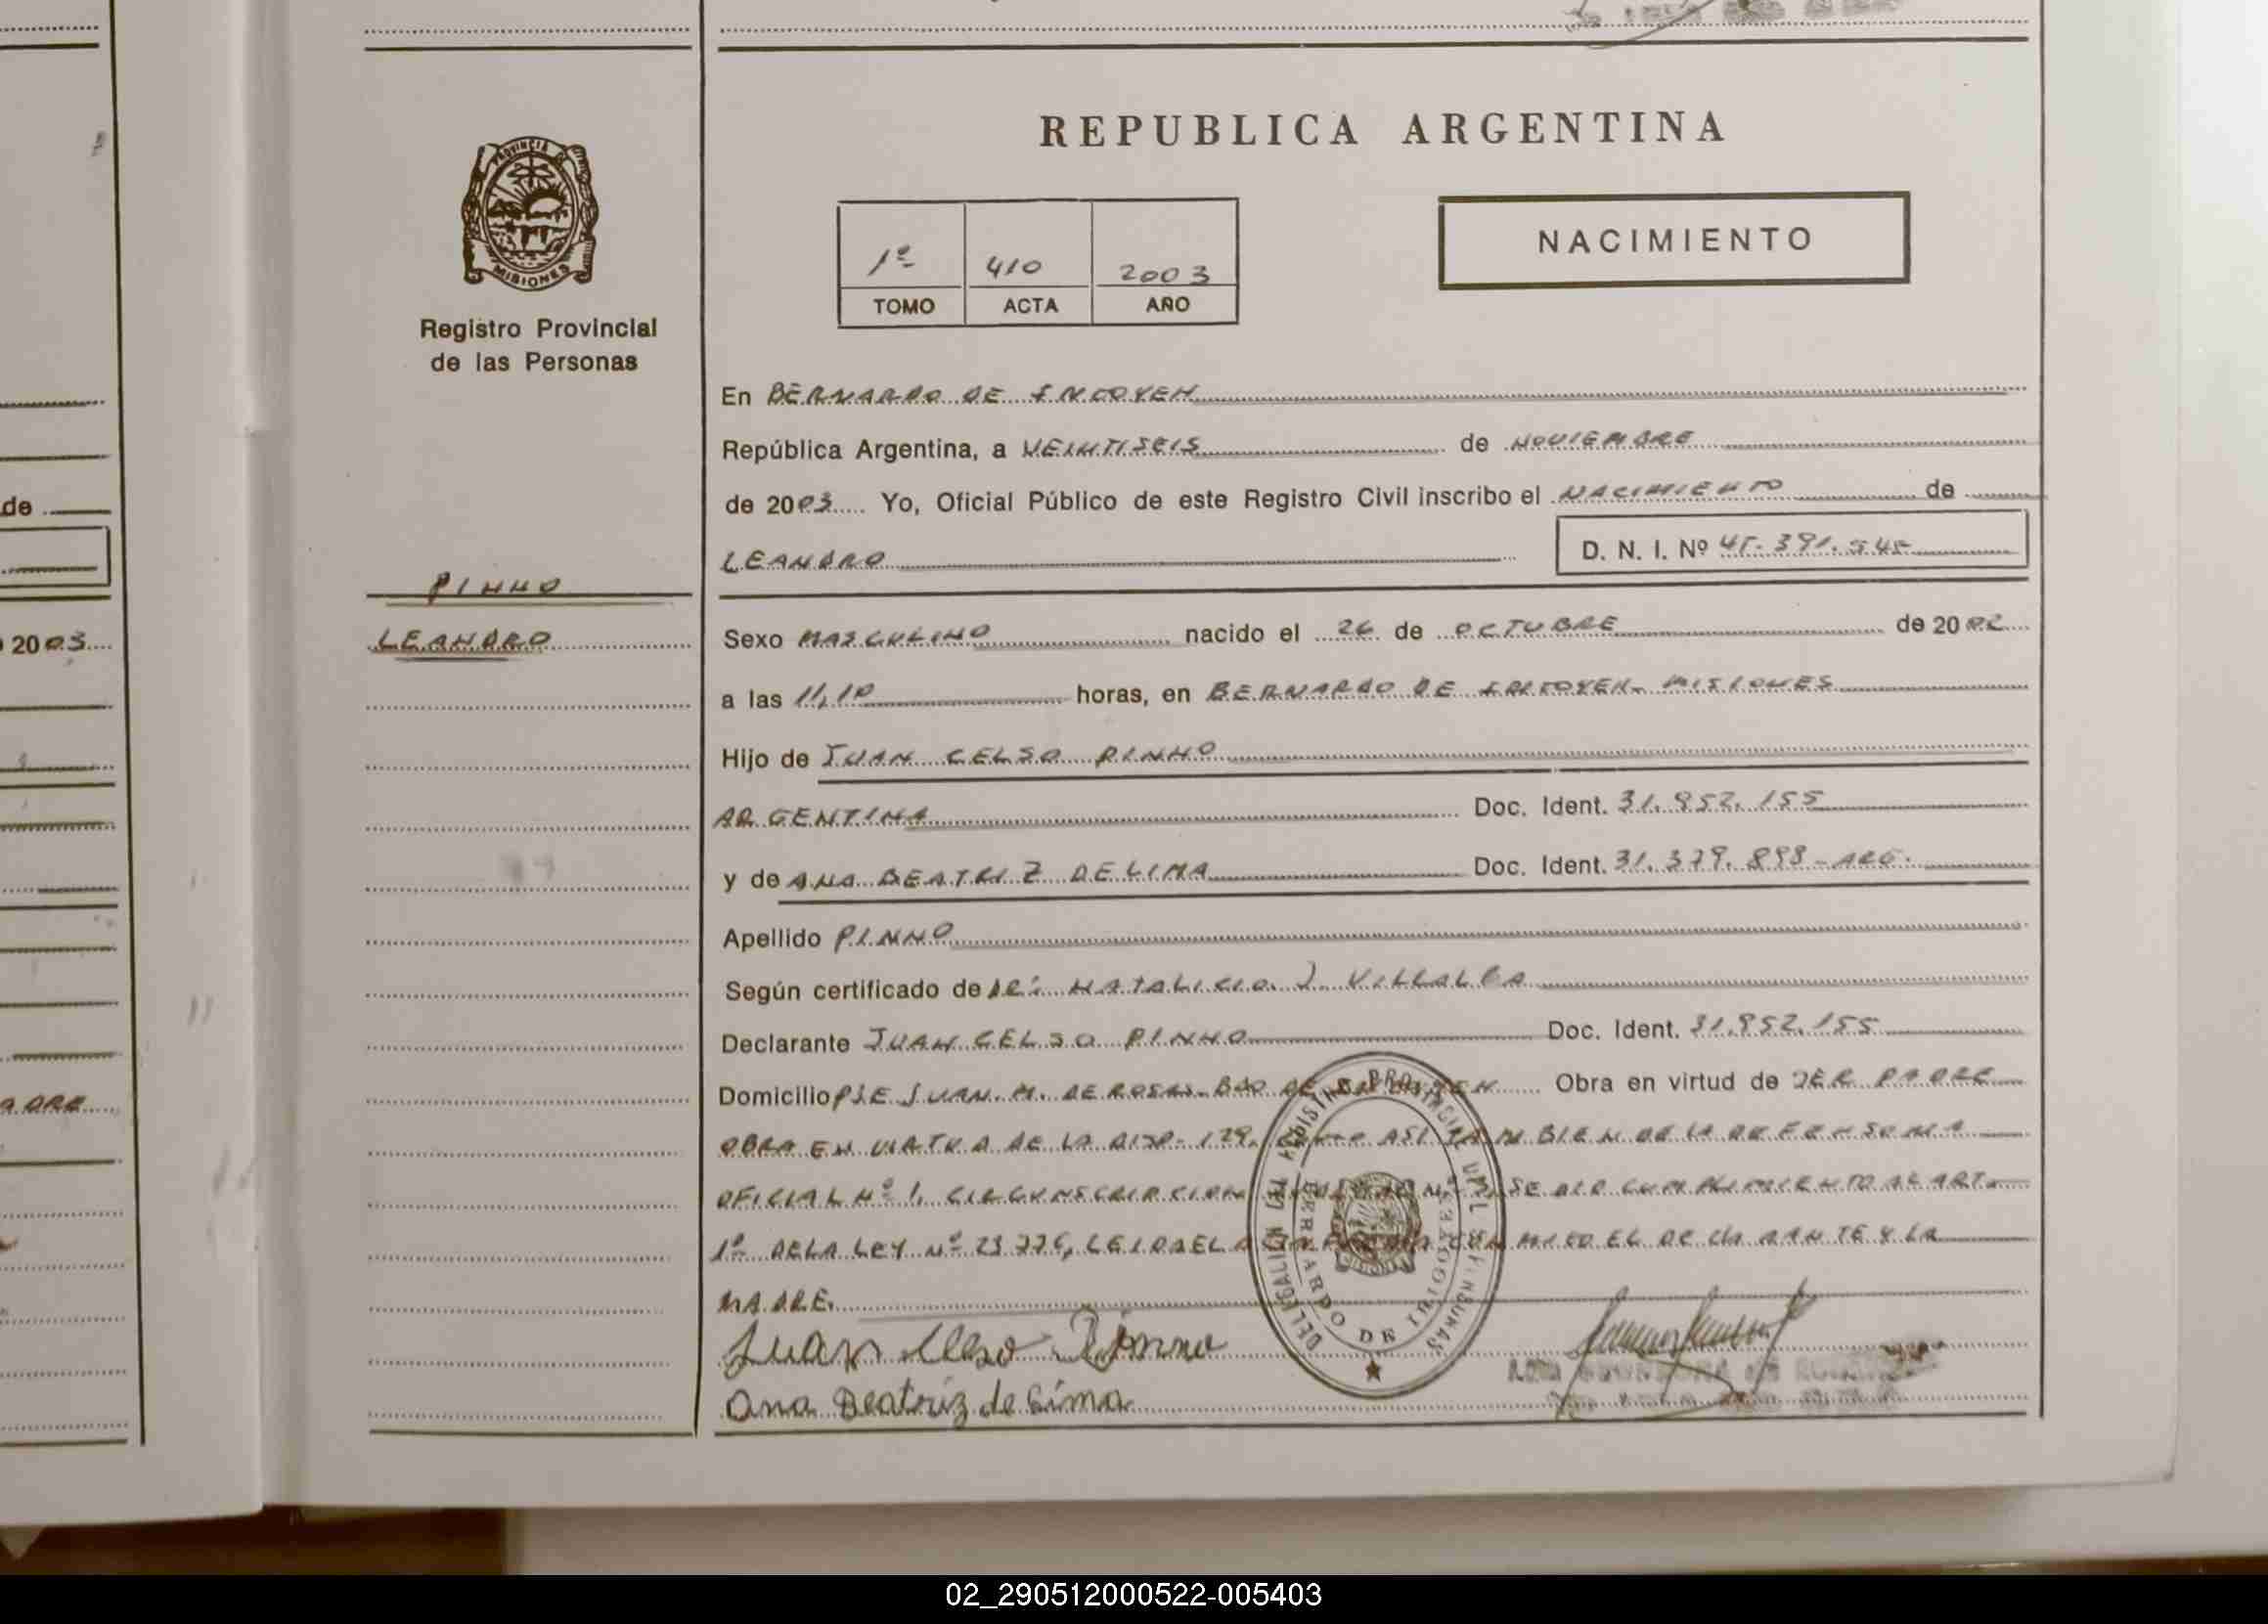 REPUBLICA ARGENTINA
PROVINCIA DE
MISIONES
Registro Provincial
de las Personas
1º 410 2003
TOMO ACTA AÑO
NACIMIENTO
En BERNARDO DE IRIGOYEN
República Argentina, a VEINTISEIS de NOVIEMBRE
de 2003 Yo, Oficial Público de este Registro Civil inscribo el NACIMIENTO de
LEANDRO D. N. I. Nº
de
2003
ADRE
PINHO
LEANDRO
Sexo MASCULINO nacido el 26 de OCTUBRE de 2002
a las 11,10 horas, en BERNARDO DE IRIGOYEN- MISIONES
Hijo de JUAN CELSO PINHO
ARGENTINA Doc. Ident. 31.952.155
y de ANA BEATRIZ DE LIMA Doc. Ident. 31.379.898-ARG.
Apellido PINHO
Según certificado de DR: NATALICIO J. VILLALBA
Declarante JUAN CELSO PINHO Doc. Ident. 31.952.155
Domicilio PJE JUAN. M. DE ROSAS- BDO DE IRIGOYEN Obra en virtud de SER PADRE
OBRA EN VIRTUD DE LA DISP- 129, COMO ASI TAMBIEN DE LA DEFENSORIA
OFICIAL Nº 1, CIRCUNSCRIPCION SE DIO CUMPLIMIENTO AL ART.
1º DE LA LEY Nº 23.776, LEIDA EL ACTA FIRMA CONMIGO EL DECLARANTE Y LA
MADRE.
Juan Celso Pinno
Ana Beatriz de Lima
DELEGACIÓN DEL REGISTRO PROVINCIAL DE LAS PERSONAS
BERNARDO DE IRIGOYEN
02_290512000522-005403